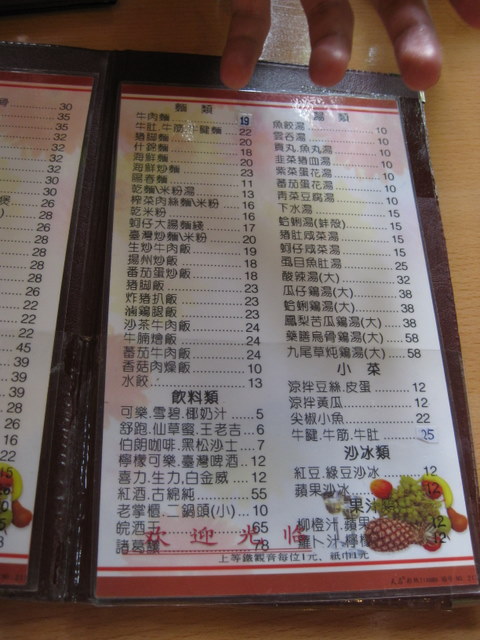 30
35
35
32
32
32
32
26
28
26
28
28
28
26
22
22
22
45
39
39
28
26
16
22
麵類
牛肉麵 19
牛肚.牛筋.牛腱麵 22
豬腳麵 20
什錦麵 18
海鮮麵 20
海鮮炒麵 23
餛吞麵 11
乾麵\米粉湯 13
榨菜肉絲麵\米粉 16
乾米粉 16
蚵仔大腸麵綫 17
臺灣炒麵\米粉 20
生炒牛肉飯 19
揚州炒飯 18
番茄蛋炒飯 18
豬脚飯 23
炸猪扒飯 23
滷鷄腿飯 23
沙茶牛肉飯 24
牛腩燴飯 24
番茄牛肉飯 24
香菇肉燥飯 10
水餃 13
飲料類
可樂.雪碧.椰奶汁 5
舒跑.仙草蜜.王老吉 6
伯朗咖啡.黑松沙士 7
檸檬可樂.臺灣啤酒 12
喜力.生力.白金威 12
紅酒.古綿純 55
老掌櫃.二鍋頭(小) 10
皖酒王 65
諸葛釀 78
湯類
魚餃湯 10
雲吞湯 10
貢丸.魚丸湯 10
韭菜豬血湯 10
紫菜蛋花湯 10
番茄蛋花湯 10
青菜豆腐湯 10
下水湯 15
蛤蜊湯(鮮殼) 15
豬肚咸菜湯 15
蚵仔咸菜湯 15
虱目魚肚湯 25
酸辣湯(大) 32
瓜仔鷄湯(大) 38
蛤蜊鷄湯(大) 38
鳳梨苦瓜鷄湯(大) 38
藥膳烏骨鷄湯(大) 58
九尾草炖鷄湯(大) 58
小菜
涼拌豆絲.皮蛋 12
涼拌黃瓜 12
尖椒小魚 22
牛腱.牛筋.牛肚 25
沙冰類
紅豆.綠豆沙冰 12
蘋果沙冰 12
果汁
柳橙汁.蘋果 12
蘿卜汁.檸檬 12
歡迎光临
上等鐵觀音每位1元、紙巾1元